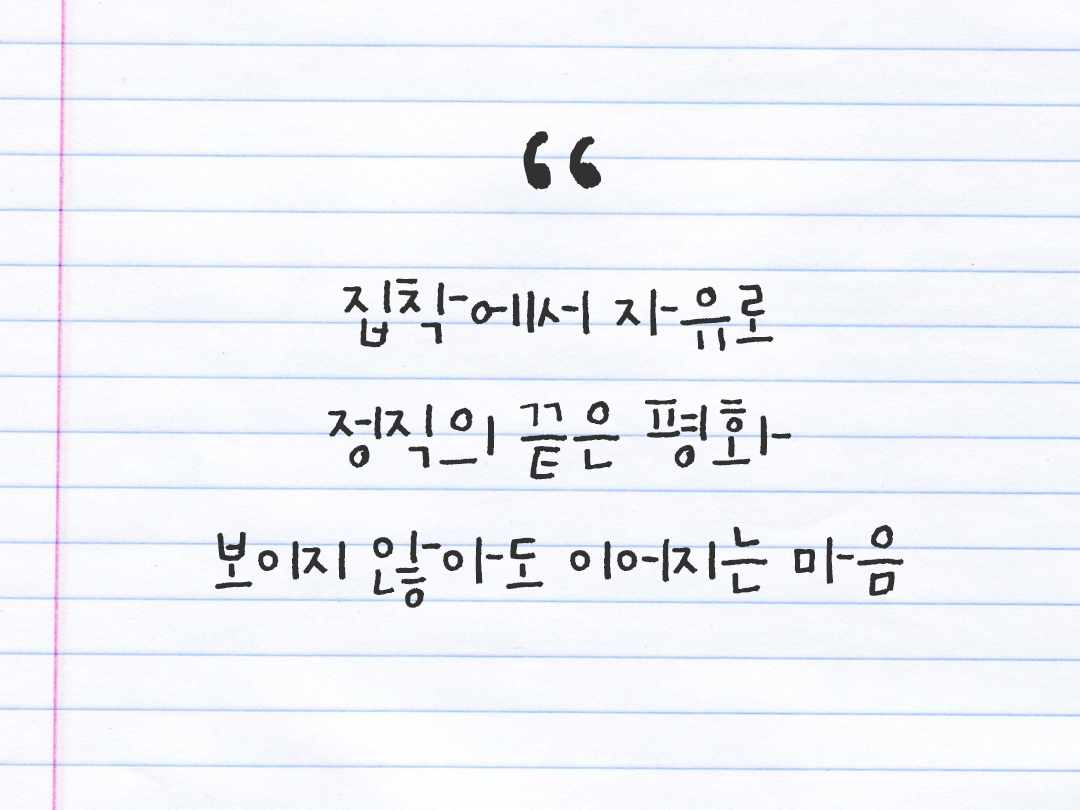 “
집착에서 자유로
정직의 끝은 평화
보이지 않아도 이어지는 마음